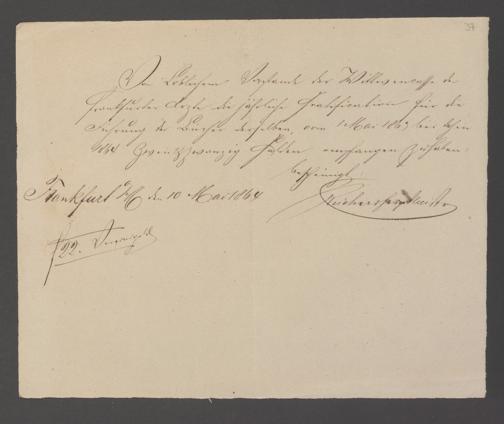 37
Von Löblichem Vorstande der Wittwencasse der
Frankfurter Aerzte die jährliche Gratification für die
Führung der Bücher derselben, vom 1 Mai 1863 bis dahin
1864 Zweiundzwanzig Gulden empfangen zu haben,
bescheinigt
Frankfurt a/M den 10 Mai 1864
f 22.